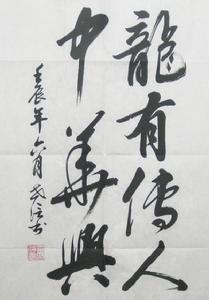 龍有傳人
中華興
壬辰年六月